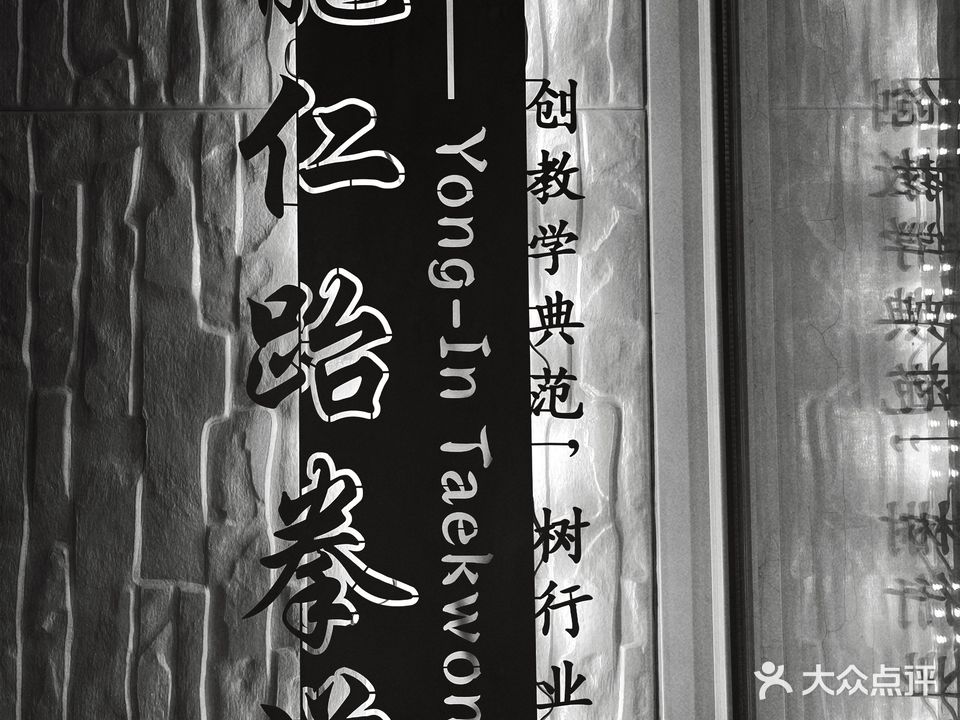 龍仁跆拳道
Yong-In Taekwon
创教学典范，树行业
大众点评